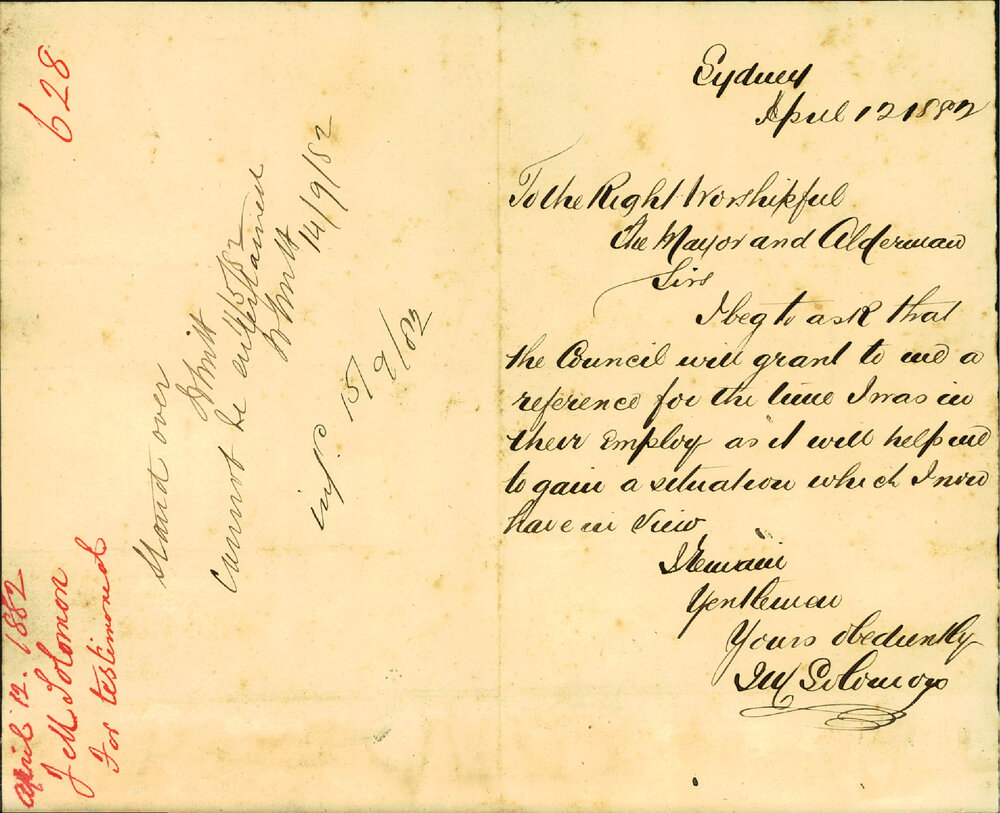 628
April 12. 1882
J M Solomon
For testimonial
Stand over
Cannot be entertained
14/9/82
15/9/82
Sydney
April 12 1882
To the Right Worshipful
the Mayor and Alderman
Sirs
I beg to ask that
the Council will grant to me a
reference for the time I was in
their Employ as it will help me
to gain a situation which I now
have in View
I Remain
Gentlemen
Yours obediently
J M Solomon